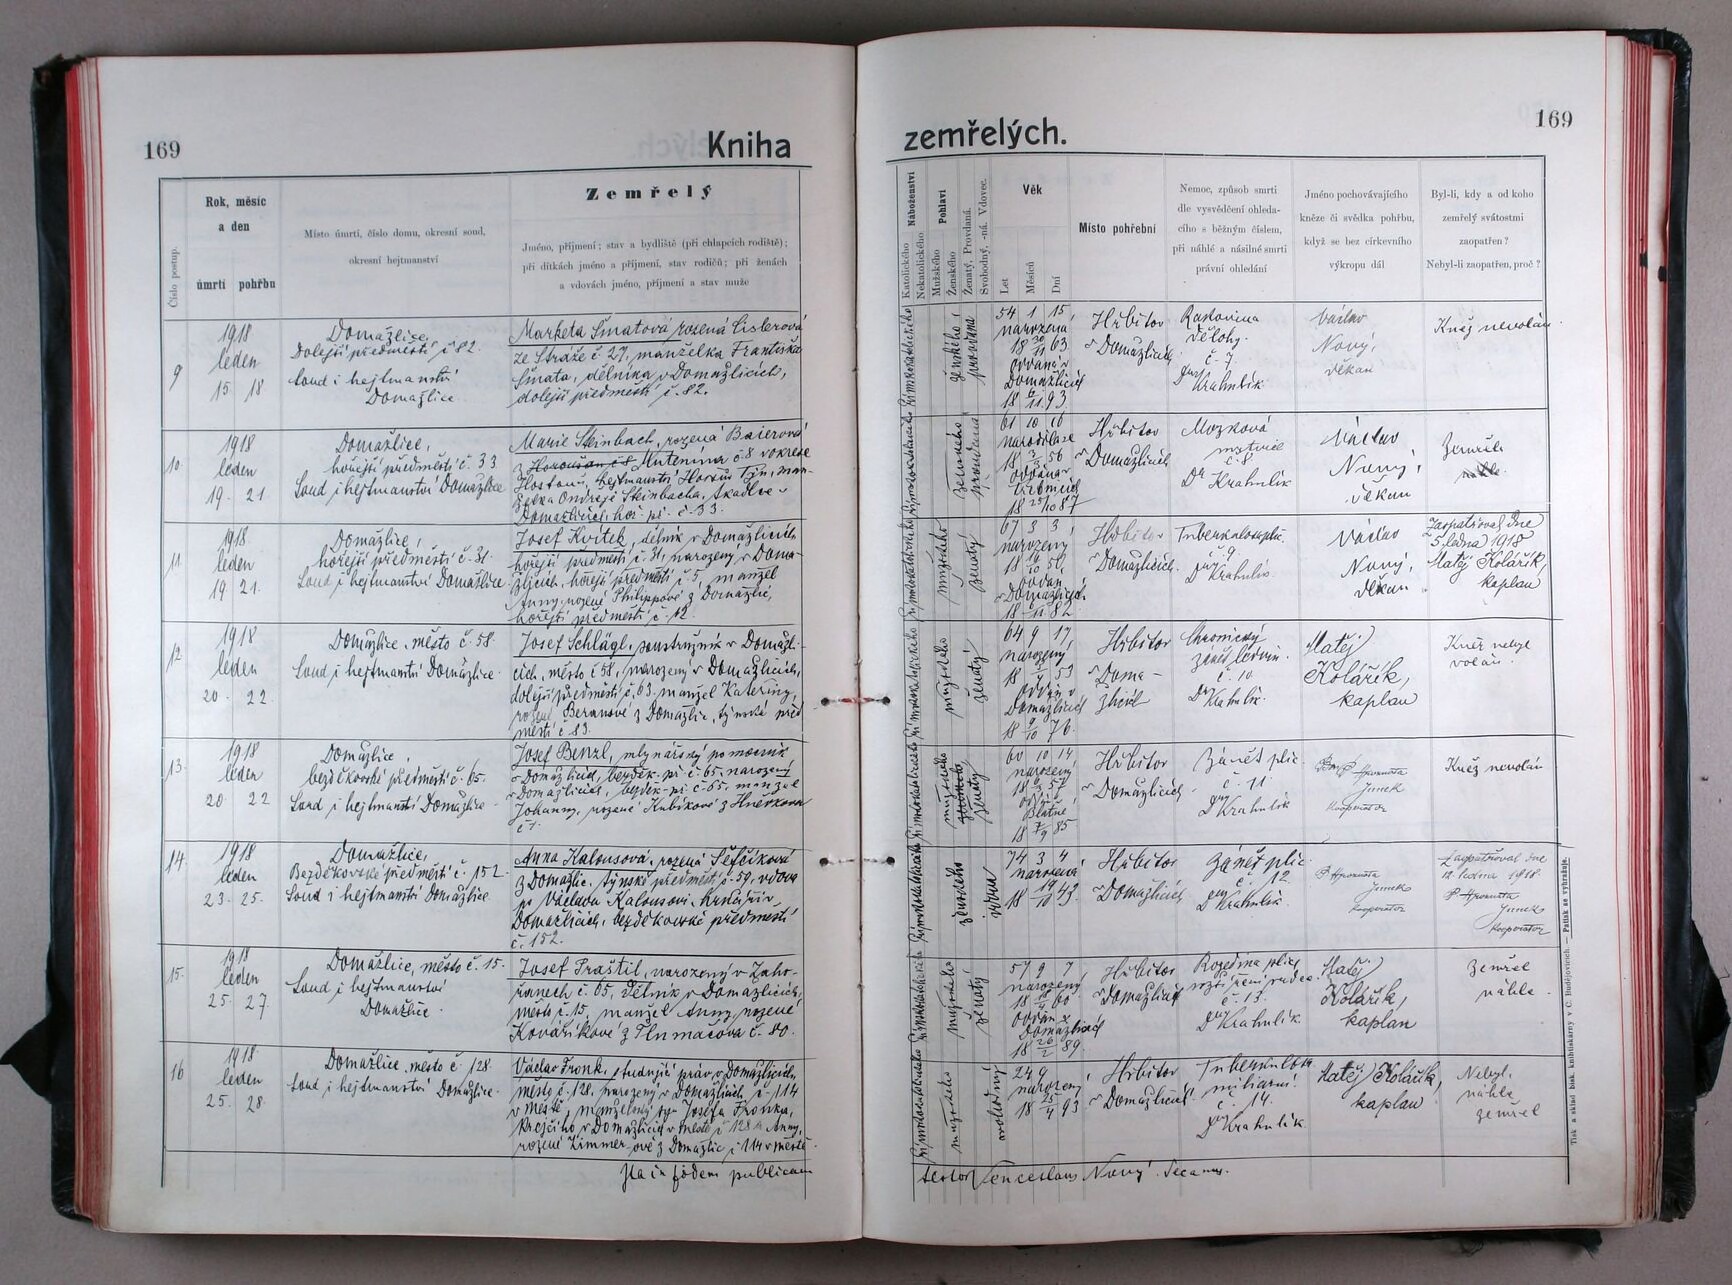 169
Kniha
zemřelých.
169
Číslo postup.
Rok, měsíc
a den
úmrtí pohřbu
Místo úmrtí, číslo domu, okresní soud,
okresní hejtmanství
Zemřelý
Jméno, příjmení; stav a bydliště (při chlapcích rodiště);
při dítkách jméno a příjmení, stav rodičů; při ženách
a vdovách jméno, příjmení a stav muže
Náboženství
Katolického
Nekatolického
Pohlaví
Mužského
Ženského
Ženatý, Provdaná.
Svobodný, -ná. Vdovec.
Věk
Let
Měsíců
Dní
Místo pohřební
Nemoc, způsob smrti
dle vysvědčení ohleda-
cího s běžným číslem,
při náhlé a násilné smrti
právní ohledání
Jméno pochovávajícího
kněze či svědka pohřbu,
když se bez církevního
výkropu dál
Byl-li, kdy a od koho
zemřelý svátostmi
zaopatřen?
Nebyl-li zaopatřen, proč?
9
1918
leden
15 18
Domažlice,
Dolejší předměstí č 82.
Soud i hejtmanství
Domažlice
Marketa Šmatová rozená Cislerová
ze Stráže č 27, manželka Františka
Šmata, dělníka v Domažlicích,
dolejší předměstí č. 82.
ženského
provdaná
54 1 15
narozená
18 63
oddaná v
Domažlicích
18 93
Hřbitov
v Domažlicích
Rakovina
dělohy.
č. 7
Dr Krahulík
Václav
Nový,
děkan
Kněz nevolán
10
1918
leden
19. 21.
Domažlice,
hořejší předměstí č. 33
Soud i hejtmanství Domažlice
Marie Steinbach, rozená Baierová
z Horoušan č 8 Mutenína č 8 v okrese
Hostouň, hejtmanství Horšův Týn, man-
želka Ondřeje Steinbacha, tkadlce v
Domažlicích, hoř. př. č. 33.
ženského
provdaná
61 10 10
narodila se
18 56
oddána v
18 87
Hřbitov
v Domažlicích
Mozková
mrtvice
č. 8
Dr Krahulík
Václav
Nový,
děkan
Zemřela
náhle.
11
1918
leden
19. 21.
Domažlice,
hořejší předměstí č. 31.
Soud i hejtmanství Domažlice
Josef Kvítek, dělník v Domažlicích,
hořejší předměstí č. 31, narozený v Doma-
žlicích, hořejší předměstí č. 5, manžel
Anny, rozené Philippové z Domažlic,
hořejší předměstí č. 12.
mužského
ženatý
67 3 3
narozený
18 50
oddán
v Domažlicích
18 82
Hřbitov
v Domažlicích.
Tuberkulosa plic.
č. 9.
Dr Krahulík
Václav
Nový,
děkan
Zaopatřoval dne
5. ledna 1918
Matěj Kolářík,
kaplan
12
1918
leden
20 22
Domažlice, město č. 58.
Soud i hejtmanství Domažlice.
Josef Schlägl, soustružník v Domažli-
cích, město č 58, narozený v Domažlicích,
dolejší předměstí č. 63, manžel Kateřiny,
rozené Beranové z Domažlic, týnské před
městí č 83.
mužského
ženatý
64 9 17
narozený
18 53
oddán v
Domažlicích
18 76
Hřbitov
v Doma-
žlicích
Chronický
zánět ledvin.
č. 10
Dr Krahulík
Matěj
Kolářík,
kaplan
Kněz nebyl
volán.
13.
1918
leden
20 22
Domažlice,
bezděkovské předměstí č. 65.
Soud i hejtmanství Domažlice
Josef Benzl, mlynářský pomocník
v Domažlicích, bezděk. př. č. 65, narozený
v Domažlicích, bezděk. př. č. 65, manžel
Johanny, rozené Kubíkové z Hněvkova
č 1.
mužského
ženatý
60 10 14
narozený
18 57
oddán
18 85
Hřbitov
v Domažlicích
Zánět plic
č. 11
Dr Krahulík
Jimek
kooperátor
Kněz nevolán
14.
1918
leden
23. 25.
Domažlice,
Bezděkovské předměstí č. 152
Soud i hejtmanství Domažlice
Anna Kalousová, rozená Šefčíková
z Domažlic, týnské předměstí č. 59, vdova
po Václavu Kalousovi, krejčím v
Domažlicích, bezděkovské předměstí
č. 152.
ženského
vdova
74 3 4
narozena
18 43
Hřbitov
v Domažlicích
Zánět plic
č. 12
Dr Krahulík
Jimek
kooperátor
Zaopatřoval dne
12. ledna 1918.
Jimek
kooperátor
15.
1918
leden
25. 27.
Domažlice, město č. 15.
Soud i hejtmanství
Domažlice.
Josef Praštil, narozený v Zaho-
řanech č. 65, dělník v Domažlicích,
město č. 15, manžel Anny, rozené
Kovaříkové z Tlumačova č. 80.
mužského
ženatý
57 9 7
narozený
18 60
oddán v
Domažlicích
18 89.
Hřbitov
v Domažlicích
Rozedma plic,
rozšíření srdce.
č. 13.
Dr Krahulík
Matěj
Kolářík,
kaplan
Zemřel
náhle.
16
1918
leden
25. 28.
Domažlice, město č 128.
Soud i hejtmanství Domažlice.
Václav Fronk, studující práv v Domažlicích,
město č. 128, narozený v Domažlicích, č. 114
v městě, manželský syn Josefa Fronka,
krejčího v Domažlicích v městě č 128 a Anny,
rozené Zimmerové z Domažlic č 114 v městě.
mužského
svobodný
24 9
narozený
18 93
Hřbitov
v Domažlicích
Tuberkulosa
miliarní.
č. 14.
Dr Krahulík
Matěj Kolářík,
kaplan
Nebyl,
náhle
zemřel
Ita in fidem publicam
testor Venceslaus Nový Decanus.
Tisk a sklad bisk. knihtiskárny v Č. Budějovicích. — Patisk se vyhražuje.